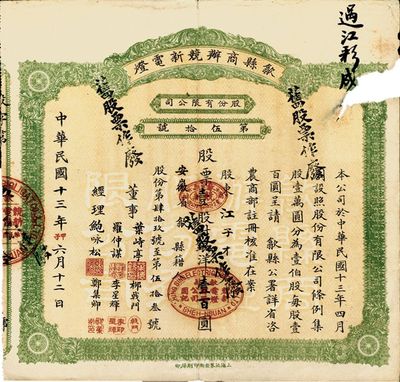 過江彩成
歙縣商辦競新電燈
股份有限公司
第伍拾號
舊股票作廢
舊股票作廢
本公司於中華民國十三年四月
設照股份有限公司條例集
股壹萬圓分為壹伯股每股壹
百圓呈請歙縣公署詳省咨
農商部註冊核准在案
股東江子才
股票壹股計洋壹百圓
安徽省歙縣籍人
股份第肆拾玖號至第伍拾叁號
董事葉峙亭
柳戟門
羅仲謀
李星緯
經理鮑詠松
鄭集卿
中華民國十三年六月十二日